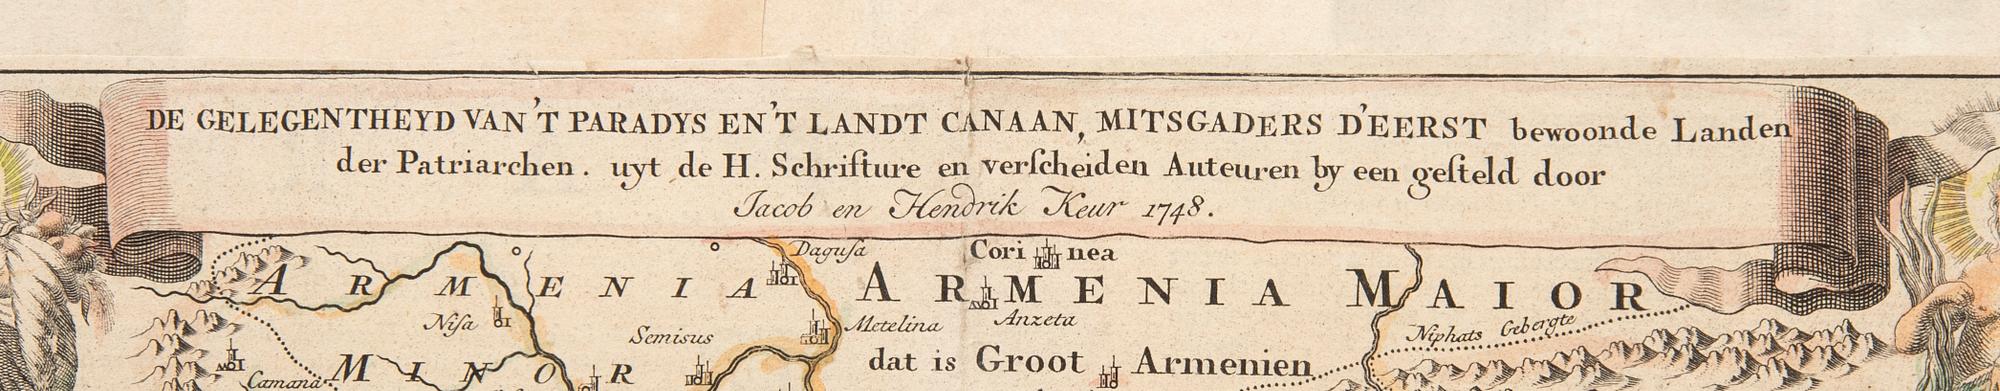 DE GELEGENTHEYD VAN'T PARADYS EN'T LANDT CANAAN, MITSGADERS D'EERST bewoonde Landen
der Patriarchen. uyt de H. Schrifture en verſcheiden Auteuren by een geſteld door
Jacob en Hendrik Keur 1748.
Daguſa
Cori nea
ARMENIA
ARMENIA MAIOR
Niſa
Semisus
Metelina
Anzeta
Niphats Gebergte
dat is Groot Armenien
Camana
MINOR